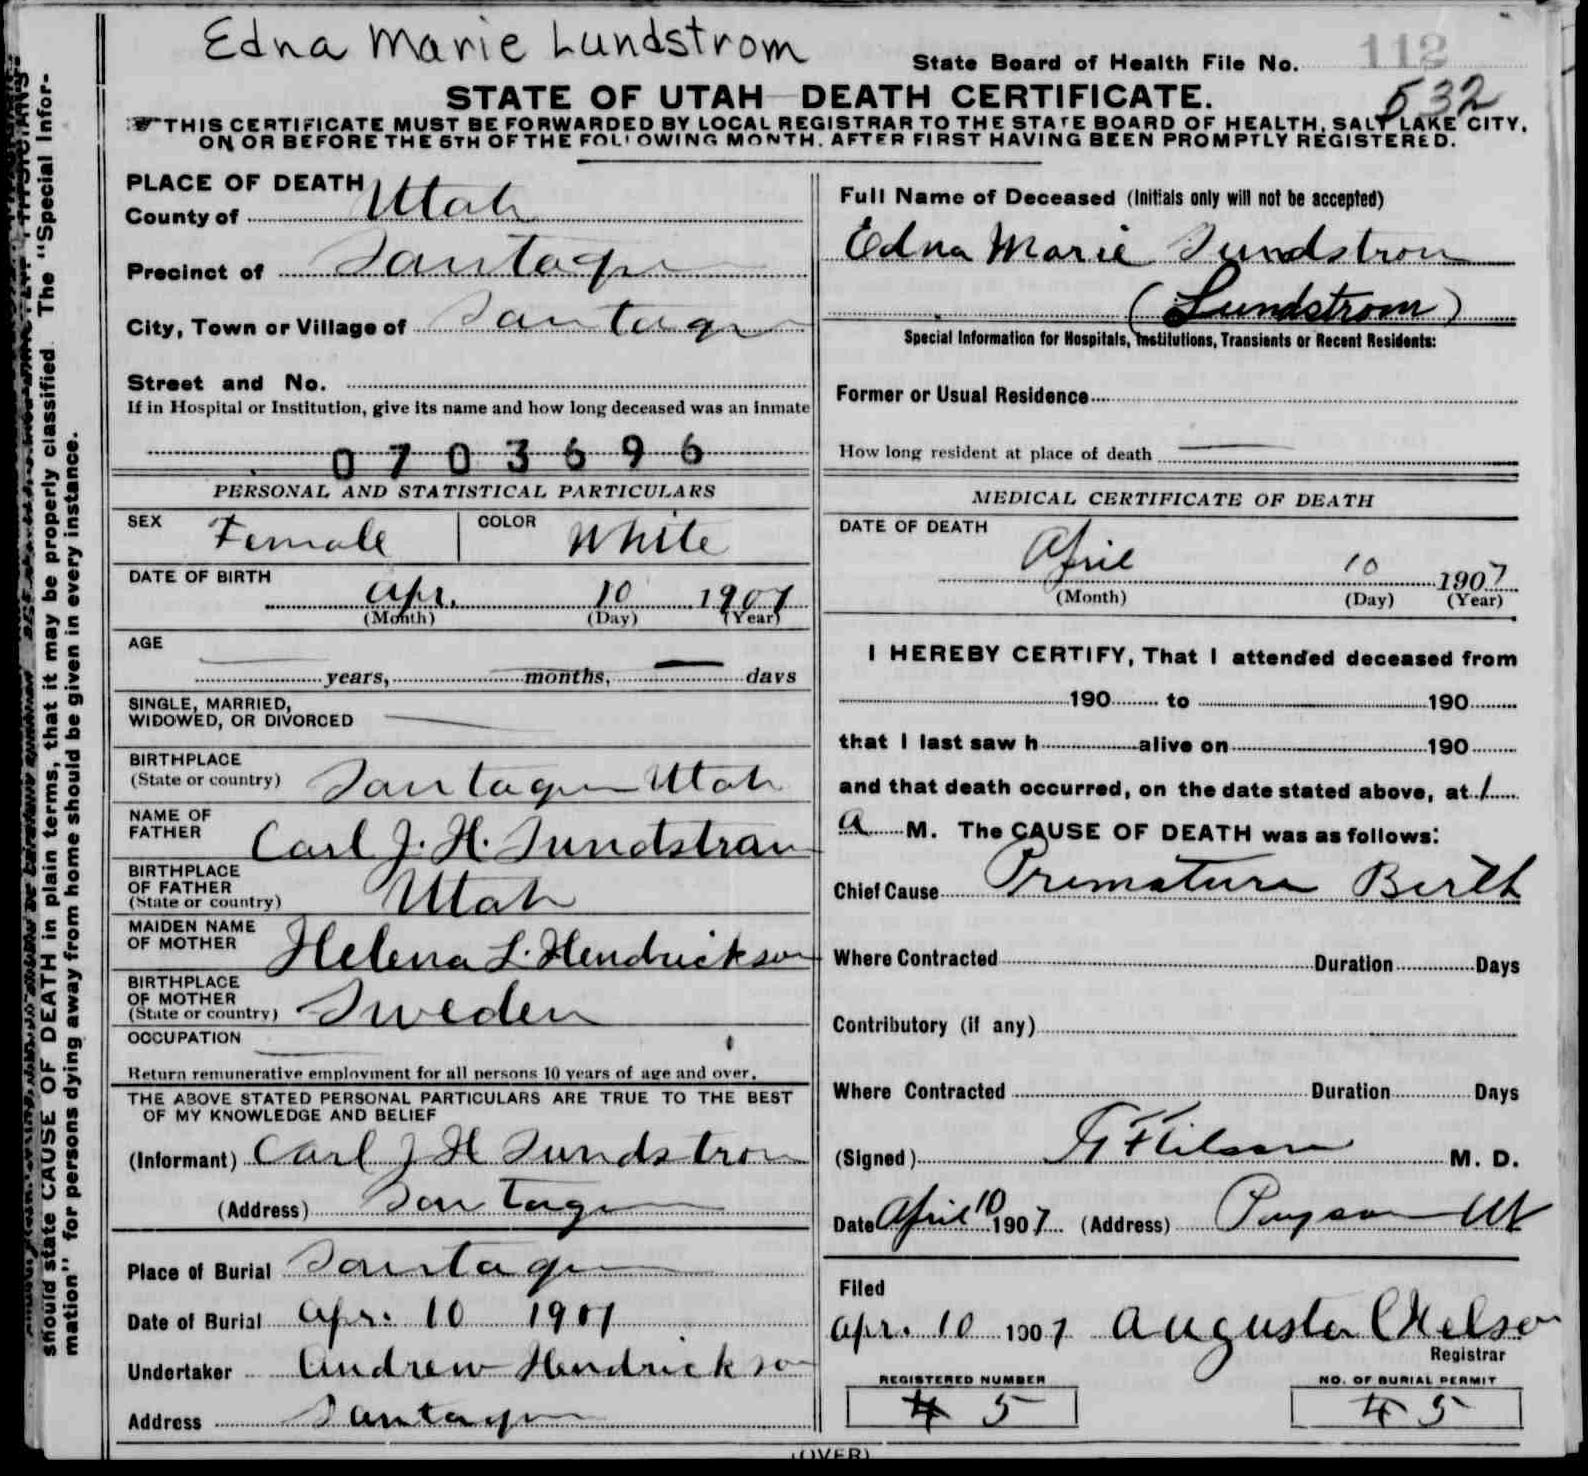 Edna Marie Lundstrom
State Board of Health File No. 112
532
STATE OF UTAH—DEATH CERTIFICATE.
THIS CERTIFICATE MUST BE FORWARDED BY LOCAL REGISTRAR TO THE STATE BOARD OF HEALTH, SALT LAKE CITY,
ON OR BEFORE THE 5TH OF THE FOLLOWING MONTH, AFTER FIRST HAVING BEEN PROMPTLY REGISTERED.
PLACE OF DEATH
County of Utah
Precinct of Santaquin
City, Town or Village of Santaquin
Street and No.
If in Hospital or Institution, give its name and how long deceased was an inmate
0703696
PERSONAL AND STATISTICAL PARTICULARS
SEX Female COLOR White
DATE OF BIRTH Apr. 10 1907
(Month) (Day) (Year)
AGE
years, months, days
SINGLE, MARRIED,
WIDOWED, OR DIVORCED
BIRTHPLACE
(State or country) Santaquin Utah
NAME OF
FATHER Carl J. H. Lundstrom
BIRTHPLACE
OF FATHER
(State or country) Utah
MAIDEN NAME
OF MOTHER Helena L. Hendrickson
BIRTHPLACE
OF MOTHER
(State or country) Sweden
OCCUPATION
Return remunerative employment for all persons 10 years of age and over.
THE ABOVE STATED PERSONAL PARTICULARS ARE TRUE TO THE BEST
OF MY KNOWLEDGE AND BELIEF
(Informant) Carl J H Lundstrom
(Address) Santaquin
Place of Burial Santaquin
Date of Burial Apr. 10 1907
Undertaker Andrew Hendrickson
Address Santaquin
Full Name of Deceased (Initials only will not be accepted)
Edna Marie Lundstrom
(Lundstrom)
Special Information for Hospitals, Institutions, Transients or Recent Residents:
Former or Usual Residence
How long resident at place of death
MEDICAL CERTIFICATE OF DEATH
DATE OF DEATH
April 10 1907
(Month) (Day) (Year)
I HEREBY CERTIFY, That I attended deceased from
190 to 190
that I last saw h alive on 190
and that death occurred, on the date stated above, at 1
a M. The CAUSE OF DEATH was as follows:
Chief Cause Premature Birth
Where Contracted Duration Days
Contributory (if any)
Where Contracted Duration Days
(Signed) M. D.
Date April 10 1907 (Address) Payson Ut
Filed
Apr. 10 1907 Augusta Nelson
Registrar
REGISTERED NUMBER
5
NO. OF BURIAL PERMIT
5
(OVER)
should state CAUSE OF DEATH in plain terms, that it may be properly classified The "Special Infor-
mation" for persons dying away from home should be given in every instance.